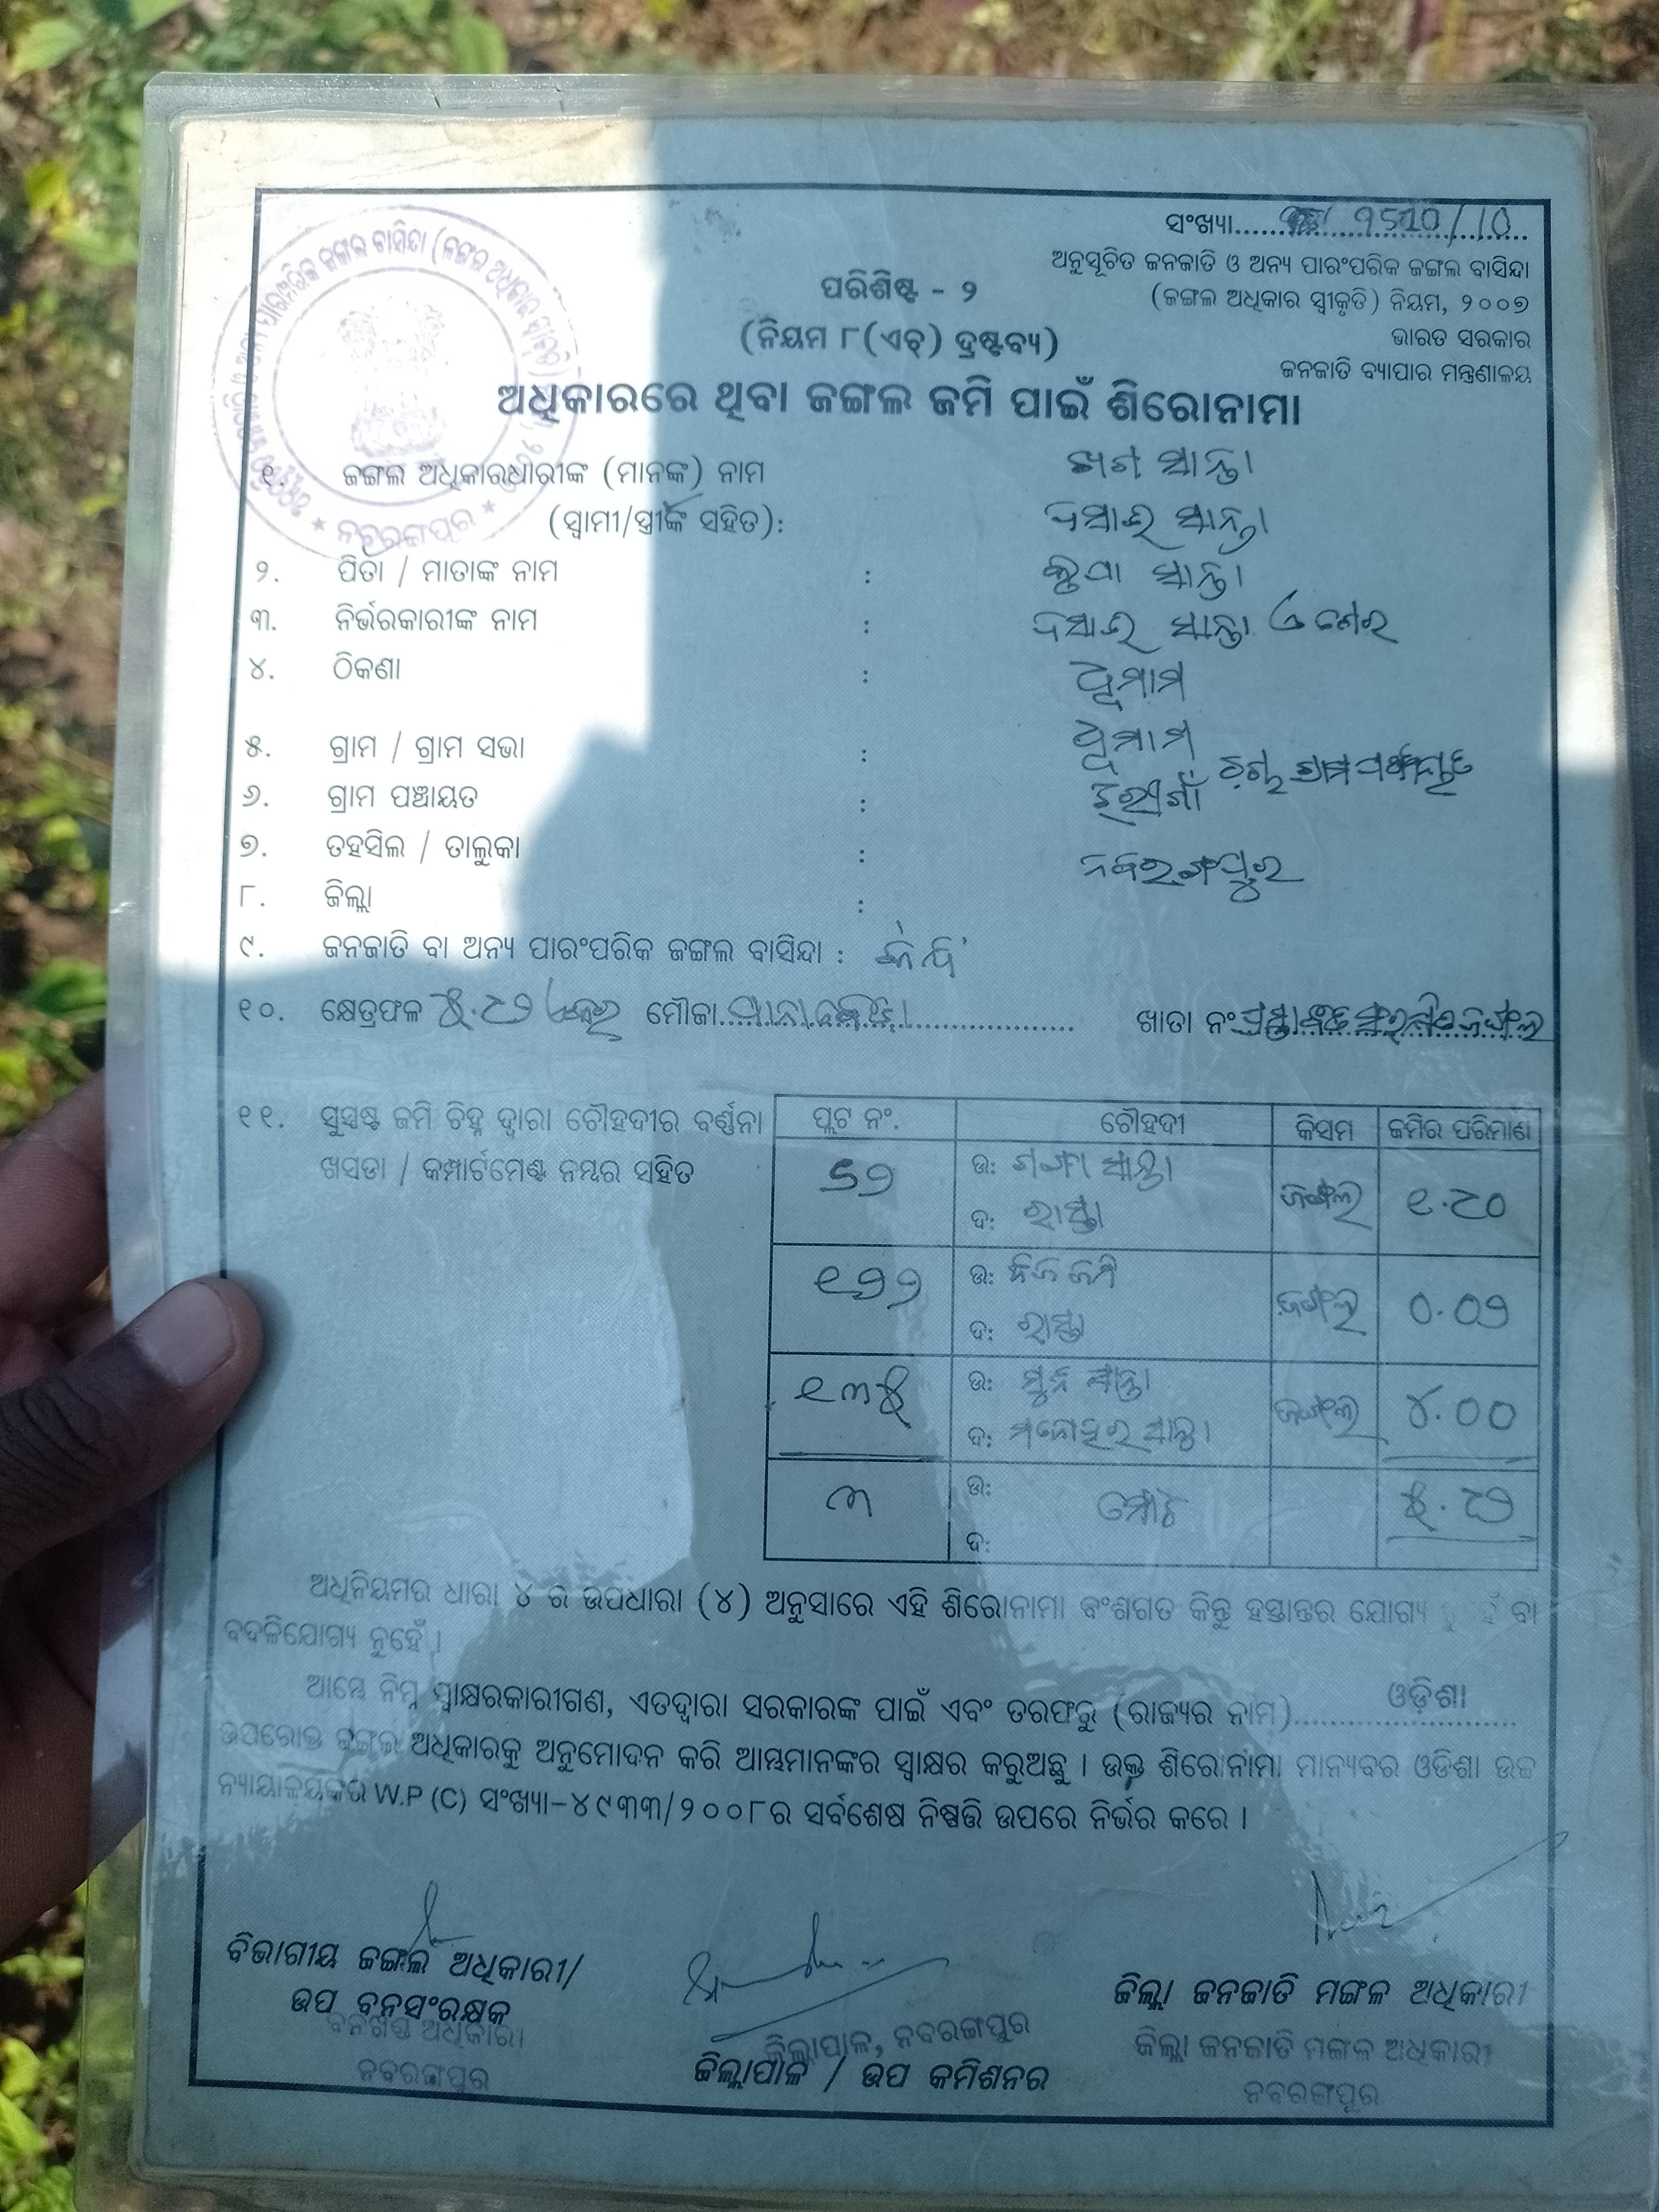 ସଂଖ୍ୟା
ଅନୁସୂଚିତ ଜନଜାତି ଓ ଅନ୍ୟ ପାରଂପରିକ ଜଙ୍ଗଲ ବାସିନ୍ଦା
(ଜଙ୍ଗଲ ଅଧିକାର ସ୍ୱୀକୃତି) ନିୟମ, ୨୦୦୭
ଭାରତ ସରକାର
ଜନଜାତି ବ୍ୟାପାର ମନ୍ତ୍ରଣାଳୟ
ପରିଶିଷ୍ଟ - ୨
(ନିୟମ ୮(ଏଚ୍) ଦ୍ରଷ୍ଟବ୍ୟ)
ଅଧିକାରରେ ଥିବା ଜଙ୍ଗଲ ଜମି ପାଇଁ ଶିରୋନାମା
ନବରଙ୍ଗପୁର
୧. ଜଙ୍ଗଲ ଅଧିକାରଧାରୀଙ୍କ (ମାନଙ୍କ) ନାମ ସାନ୍ତା
(ସ୍ୱାମୀ/ସ୍ତ୍ରୀଙ୍କ ସହିତ): ଦସାଇ ସାନ୍ତା
୨. ପିତା / ମାତାଙ୍କ ନାମ : ସାନ୍ତା
୩. ନିର୍ଭରକାରୀଙ୍କ ନାମ : ଦସାଇ ସାନ୍ତା
୪. ଠିକଣା :
୫. ଗ୍ରାମ / ଗ୍ରାମ ସଭା :
୬. ଗ୍ରାମ ପଞ୍ଚାୟତ : ଝରୀଗାଁ
୭. ତହସିଲ / ତାଲୁକା :
୮. ଜିଲ୍ଲା : ନବରଙ୍ଗପୁର
୯. ଜନଜାତି ବା ଅନ୍ୟ ପାରଂପରିକ ଜଙ୍ଗଲ ବାସିନ୍ଦା :
୧୦. କ୍ଷେତ୍ରଫଳ ୫.୮୨ ମୌଜା ଖାତା ନଂ
୧୧. ସୁସ୍ପଷ୍ଟ ଜମି ଚିହ୍ନ ଦ୍ୱାରା ଚୌହଦୀର ବର୍ଣ୍ଣନା
ଖସଡା / କମ୍ପାର୍ଟମେଣ୍ଟ ନମ୍ବର ସହିତ
ପ୍ଲଟ ନଂ. ଚୌହଦୀ କିସମ ଜମିର ପରିମାଣ
ଉ: ଗଙ୍ଗା ସାନ୍ତା
ଦ: ରାସ୍ତା
ଜଙ୍ଗଲ ୧.୮୦
ଉ: ନିଜ ଜମି
ଦ: ରାସ୍ତା
ଜଙ୍ଗଲ ୦.୦୨
୧୩୫
ଉ: ସାନ୍ତା
ଦ: ମନୋହର ସାନ୍ତା
ଜଙ୍ଗଲ ୪.୦୦
୩
ଉ: ମୋଟ
ଦ:
୫.୮୨
ଅଧିନିୟମର ଧାରା ୪ ର ଉପଧାରା (୪) ଅନୁସାରେ ଏହି ଶିରୋନାମା ବଂଶଗତ କିନ୍ତୁ ହସ୍ତାନ୍ତର ଯୋଗ୍ୟ ନୁହେଁ ବା
ବଦଳିଯୋଗ୍ୟ ନୁହେଁ ।
ଆମ୍ଭେ ନିମ୍ନ ସ୍ୱାକ୍ଷରକାରୀଗଣ, ଏତଦ୍ୱାରା ସରକାରଙ୍କ ପାଇଁ ଏବଂ ତରଫରୁ (ରାଜ୍ୟର ନାମ) ଓଡ଼ିଶା
ଉପରୋକ୍ତ ଜଙ୍ଗଲ ଅଧିକାରକୁ ଅନୁମୋଦନ କରି ଆମ୍ଭମାନଙ୍କର ସ୍ୱାକ୍ଷର କରୁଅଛୁ । ଉକ୍ତ ଶିରୋନାମା ମାନ୍ୟବର ଓଡିଶା ଉଚ୍ଚ
ନ୍ୟାୟାଳୟଙ୍କର W.P (C) ସଂଖ୍ୟା-୪୯୩୩/୨୦୦୮ର ସର୍ବଶେଷ ନିଷ୍ପତ୍ତି ଉପରେ ନିର୍ଭର କରେ ।
ବିଭାଗୀୟ ଜଙ୍ଗଲ ଅଧିକାରୀ/
ଉପ ବନସଂରକ୍ଷକ
ବନଖଣ୍ଡ ଅଧିକାରୀ
ନବରଙ୍ଗପୁର
ଜିଲ୍ଲାପାଳ, ନବରଙ୍ଗପୁର
ଜିଲ୍ଲାପାଳ / ଉପ କମିଶନର
ଜିଲ୍ଲା ଜନଜାତି ମଙ୍ଗଳ ଅଧିକାରୀ
ଜିଲ୍ଲା ଜନଜାତି ମଙ୍ଗଳ ଅଧିକାରୀ
ନବରଙ୍ଗପୁର